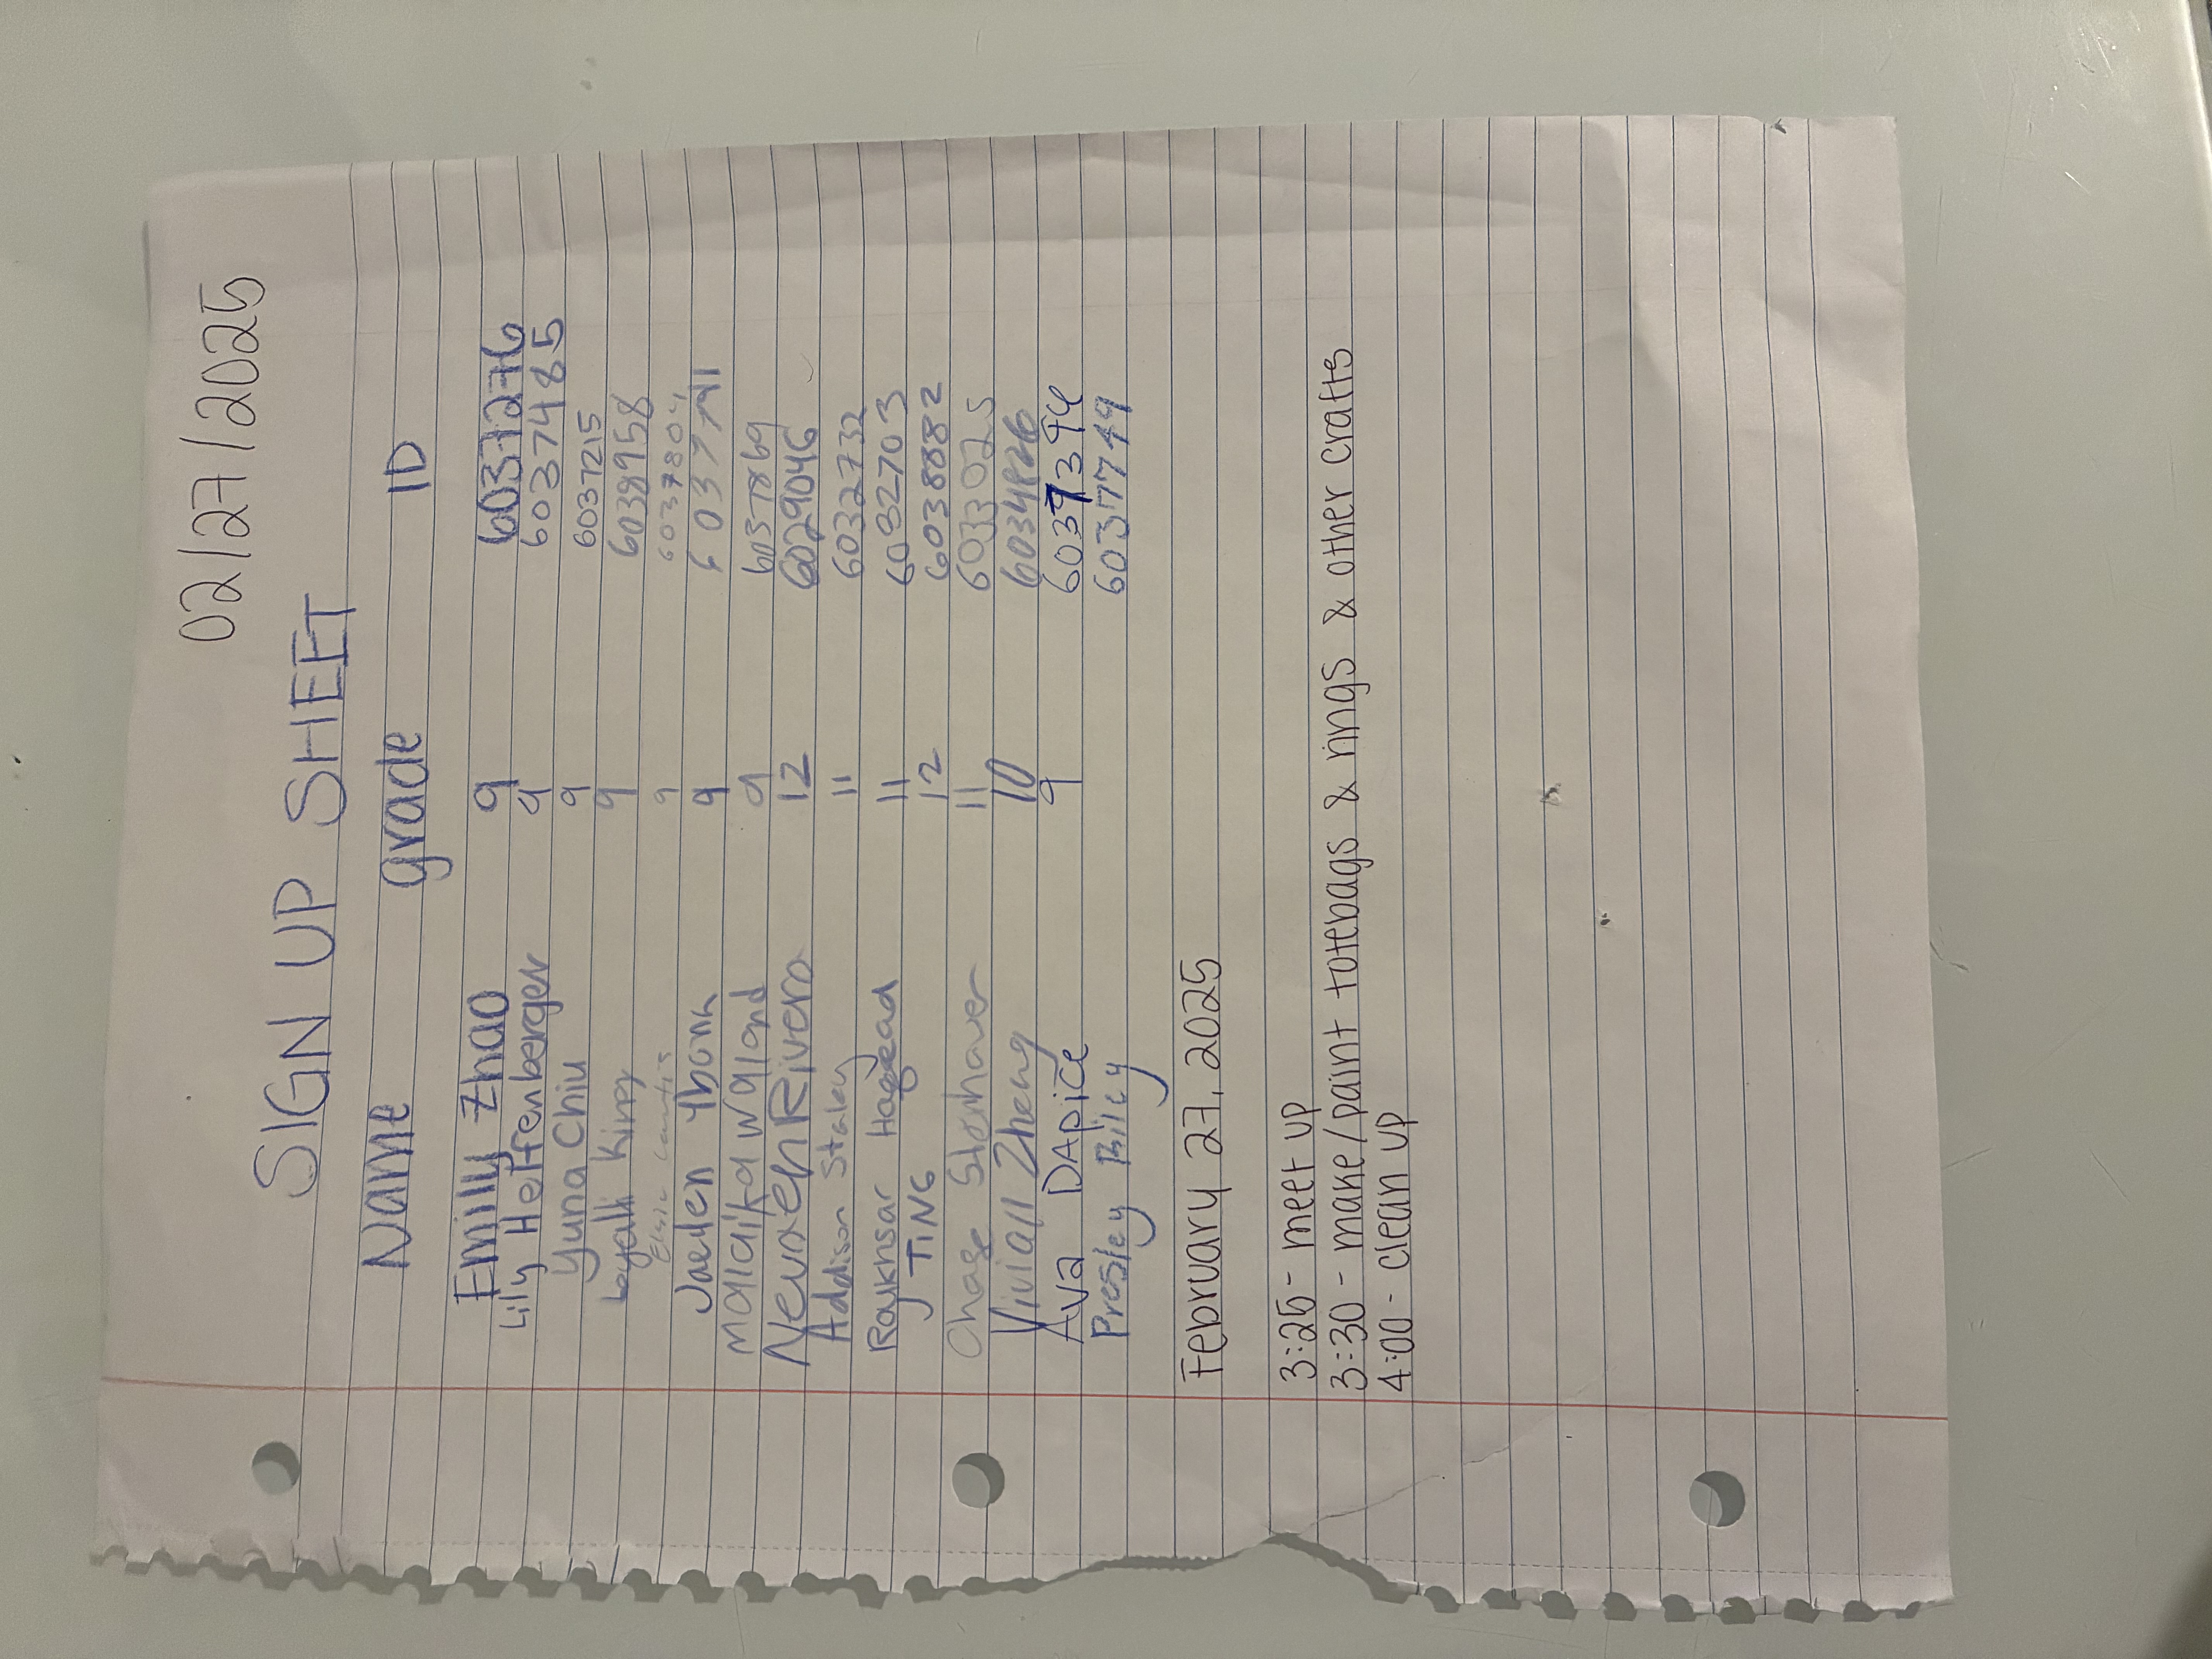 02/27/2025
SIGN UP SHEET
Name grade ID
Emily Zhao 9 6037276
Lily Heffenberger 9 6037485
Yuna Chiu 9 6037215
Kinry 9 6038958
Elsie 9 603780
Jaelen Ybona 9
Malaika Waland 9 6037869
Nevaeh Rivera 12 6029046
Addison Staley 11 6032732
Roukhsar 11 6032703
J TING 12 6038882
Chase Stonhaver 11 6033025
Vivian Zheng 10
Ava DApice 9
Presley Biley 6037749
February 27, 2025
3:25 - meet up
3:30 - make/paint totebags & rings & other crafts
4:00 - clean up